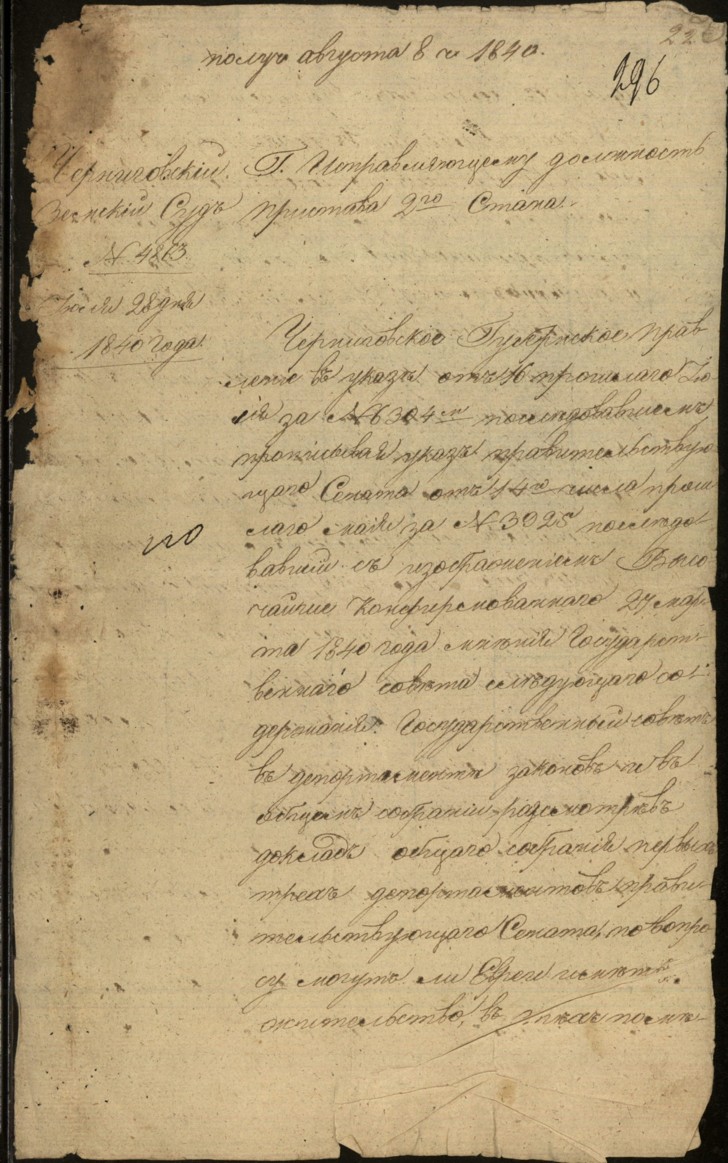 226
получ августа 8 ч 1840.
296
Черниговскій
Земскій Судъ
N. 4813
Июля 28 дня
1840 года.
Г. Исправляющему должность
пристава 2го Стана.
Черниговское Губернское прав
ление въ указѣ отъ 16 прошлаго Ию
ля за № 6304м последовавшемъ
прописывая указъ правительствую
щаго Сената отъ 14го числа прош
лаго мая за N. 3025 последо
вавшій съ изображеніемъ Высо
чайше конфирмованнаго 27 мар
та 1840 года мнѣнія Государст
веннаго совѣта следующаго со
держанія: Государственный совѣтъ
въ департаментѣ законовъ и въ
общемъ собраніи разсмотрѣвъ
докладъ общаго собранія первыхъ
трехъ департаментовъ прави
тельствующаго Сената, по вопро
су могутъ ли Евреи иметь
жительство, въ помѣ-